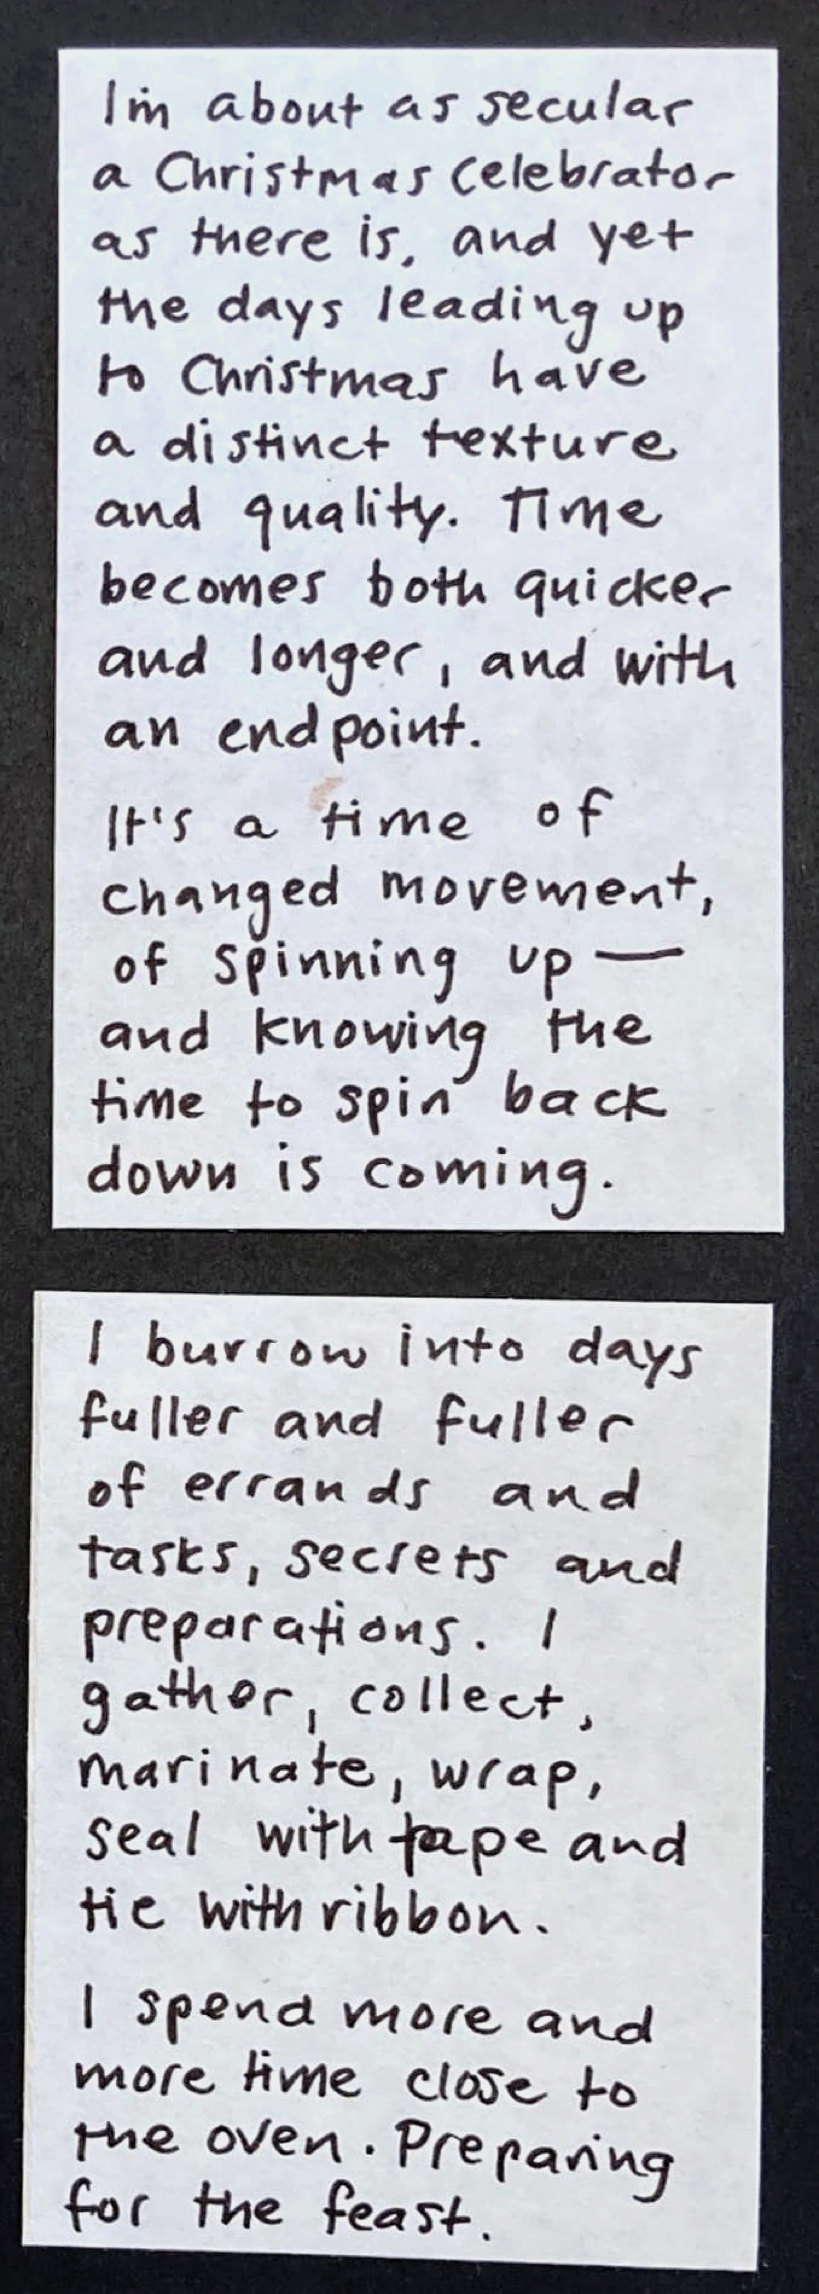 I'm about as secular
a Christmas celebrator
as there is, and yet
the days leading up
to Christmas have
a distinct texture
and quality. Time
becomes both quicker
and longer, and with
an endpoint.
It's a time of
changed movement,
of spinning up —
and knowing the
time to spin back
down is coming.
I burrow into days
fuller and fuller
of errands and
tasks, secrets and
preparations. I
gather, collect,
marinate, wrap,
seal with tape and
tie with ribbon.
I spend more and
more time close to
the oven. Preparing
for the feast.